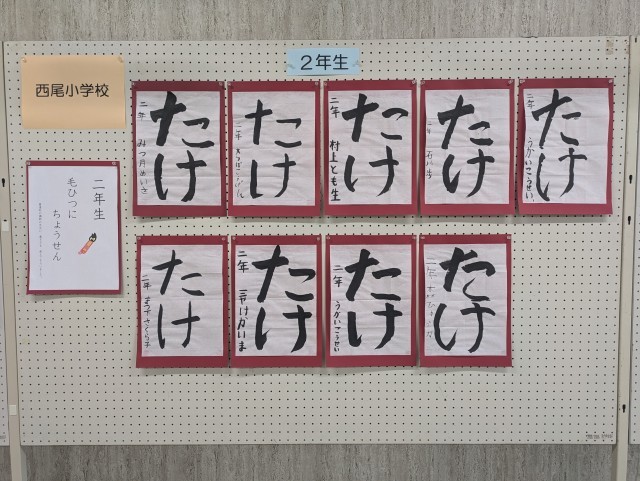 西尾小学校
2年生
二年生
毛ひつに
ちょうせん
たけ
二年
たけ
二年
たけ
二年 村上とも生
たけ
二年
たけ
二年 うかいこうせい
たけ
二年
たけ
二年
たけ
二年 うかいこうせい
たけ
二年